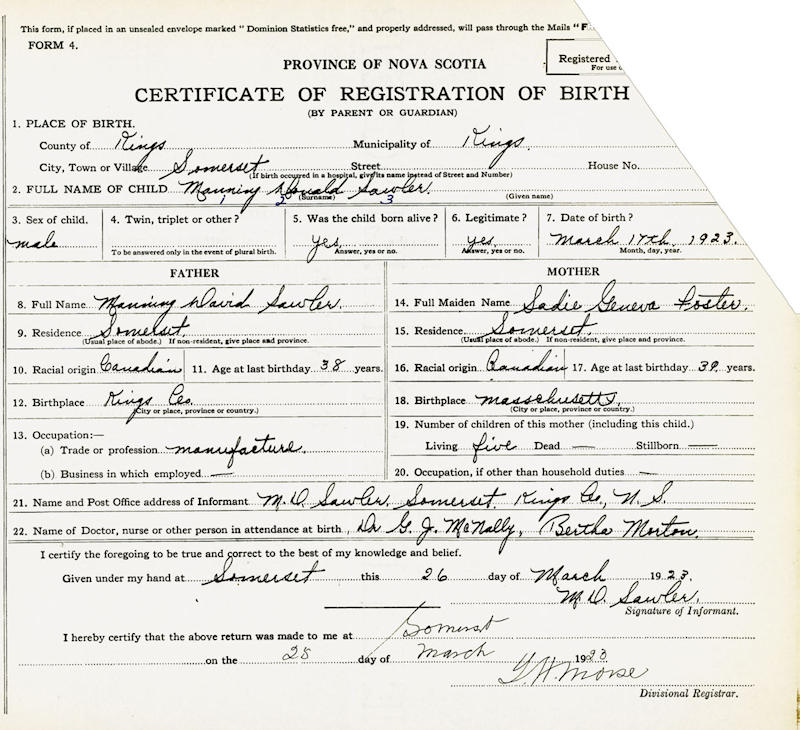 This form, if placed in an unsealed envelope marked "Dominion Statistics free," and properly addressed, will pass through the Mails "F
FORM 4.
Registered
For use
PROVINCE OF NOVA SCOTIA
CERTIFICATE OF REGISTRATION OF BIRTH
(BY PARENT OR GUARDIAN)
1. PLACE OF BIRTH.
County of Kings Municipality of Kings
City, Town or Village Somerset Street House No.
(If birth occurred in a hospital, give its name instead of Street and Number)
2. FULL NAME OF CHILD Manning Donald Sawler.
1 2 (Surname) 3 (Given name)
3. Sex of child. 4. Twin, triplet or other? 5. Was the child born alive? 6. Legitimate? 7. Date of birth?
male yes yes. March 17th, 1923.
To be answered only in the event of plural birth. Answer, yes or no. Answer, yes or no. Month, day, year.
FATHER MOTHER
8. Full Name Manning David Sawler. 14. Full Maiden Name Sadie Geneva Foster.
9. Residence Somerset. 15. Residence Somerset.
(Usual place of abode.) If non-resident, give place and province. (Usual place of abode.) If non-resident, give place and province.
10. Racial origin Canadian 11. Age at last birthday 38 years. 16. Racial origin Canadian 17. Age at last birthday 39 years.
12. Birthplace Kings Co. 18. Birthplace Masschusetts.
(City or place, province or country.) (City or place, province or country.)
13. Occupation:— 19. Number of children of this mother (including this child.)
(a) Trade or profession manufacture. Living five Dead — Stillborn —
(b) Business in which employed — 20. Occupation, if other than household duties —
21. Name and Post Office address of Informant M. D. Sawler, Somerset, Kings Co., N. S.
22. Name of Doctor, nurse or other person in attendance at birth, Dr G. J. McNally, Bertha Morton.
I certify the foregoing to be true and correct to the best of my knowledge and belief.
Given under my hand at Somerset this 26 day of March 1923.
M. D. Sawler.
Signature of Informant.
I hereby certify that the above return was made to me at Somerset
on the 28 day of March 1923
Morse
Divisional Registrar.